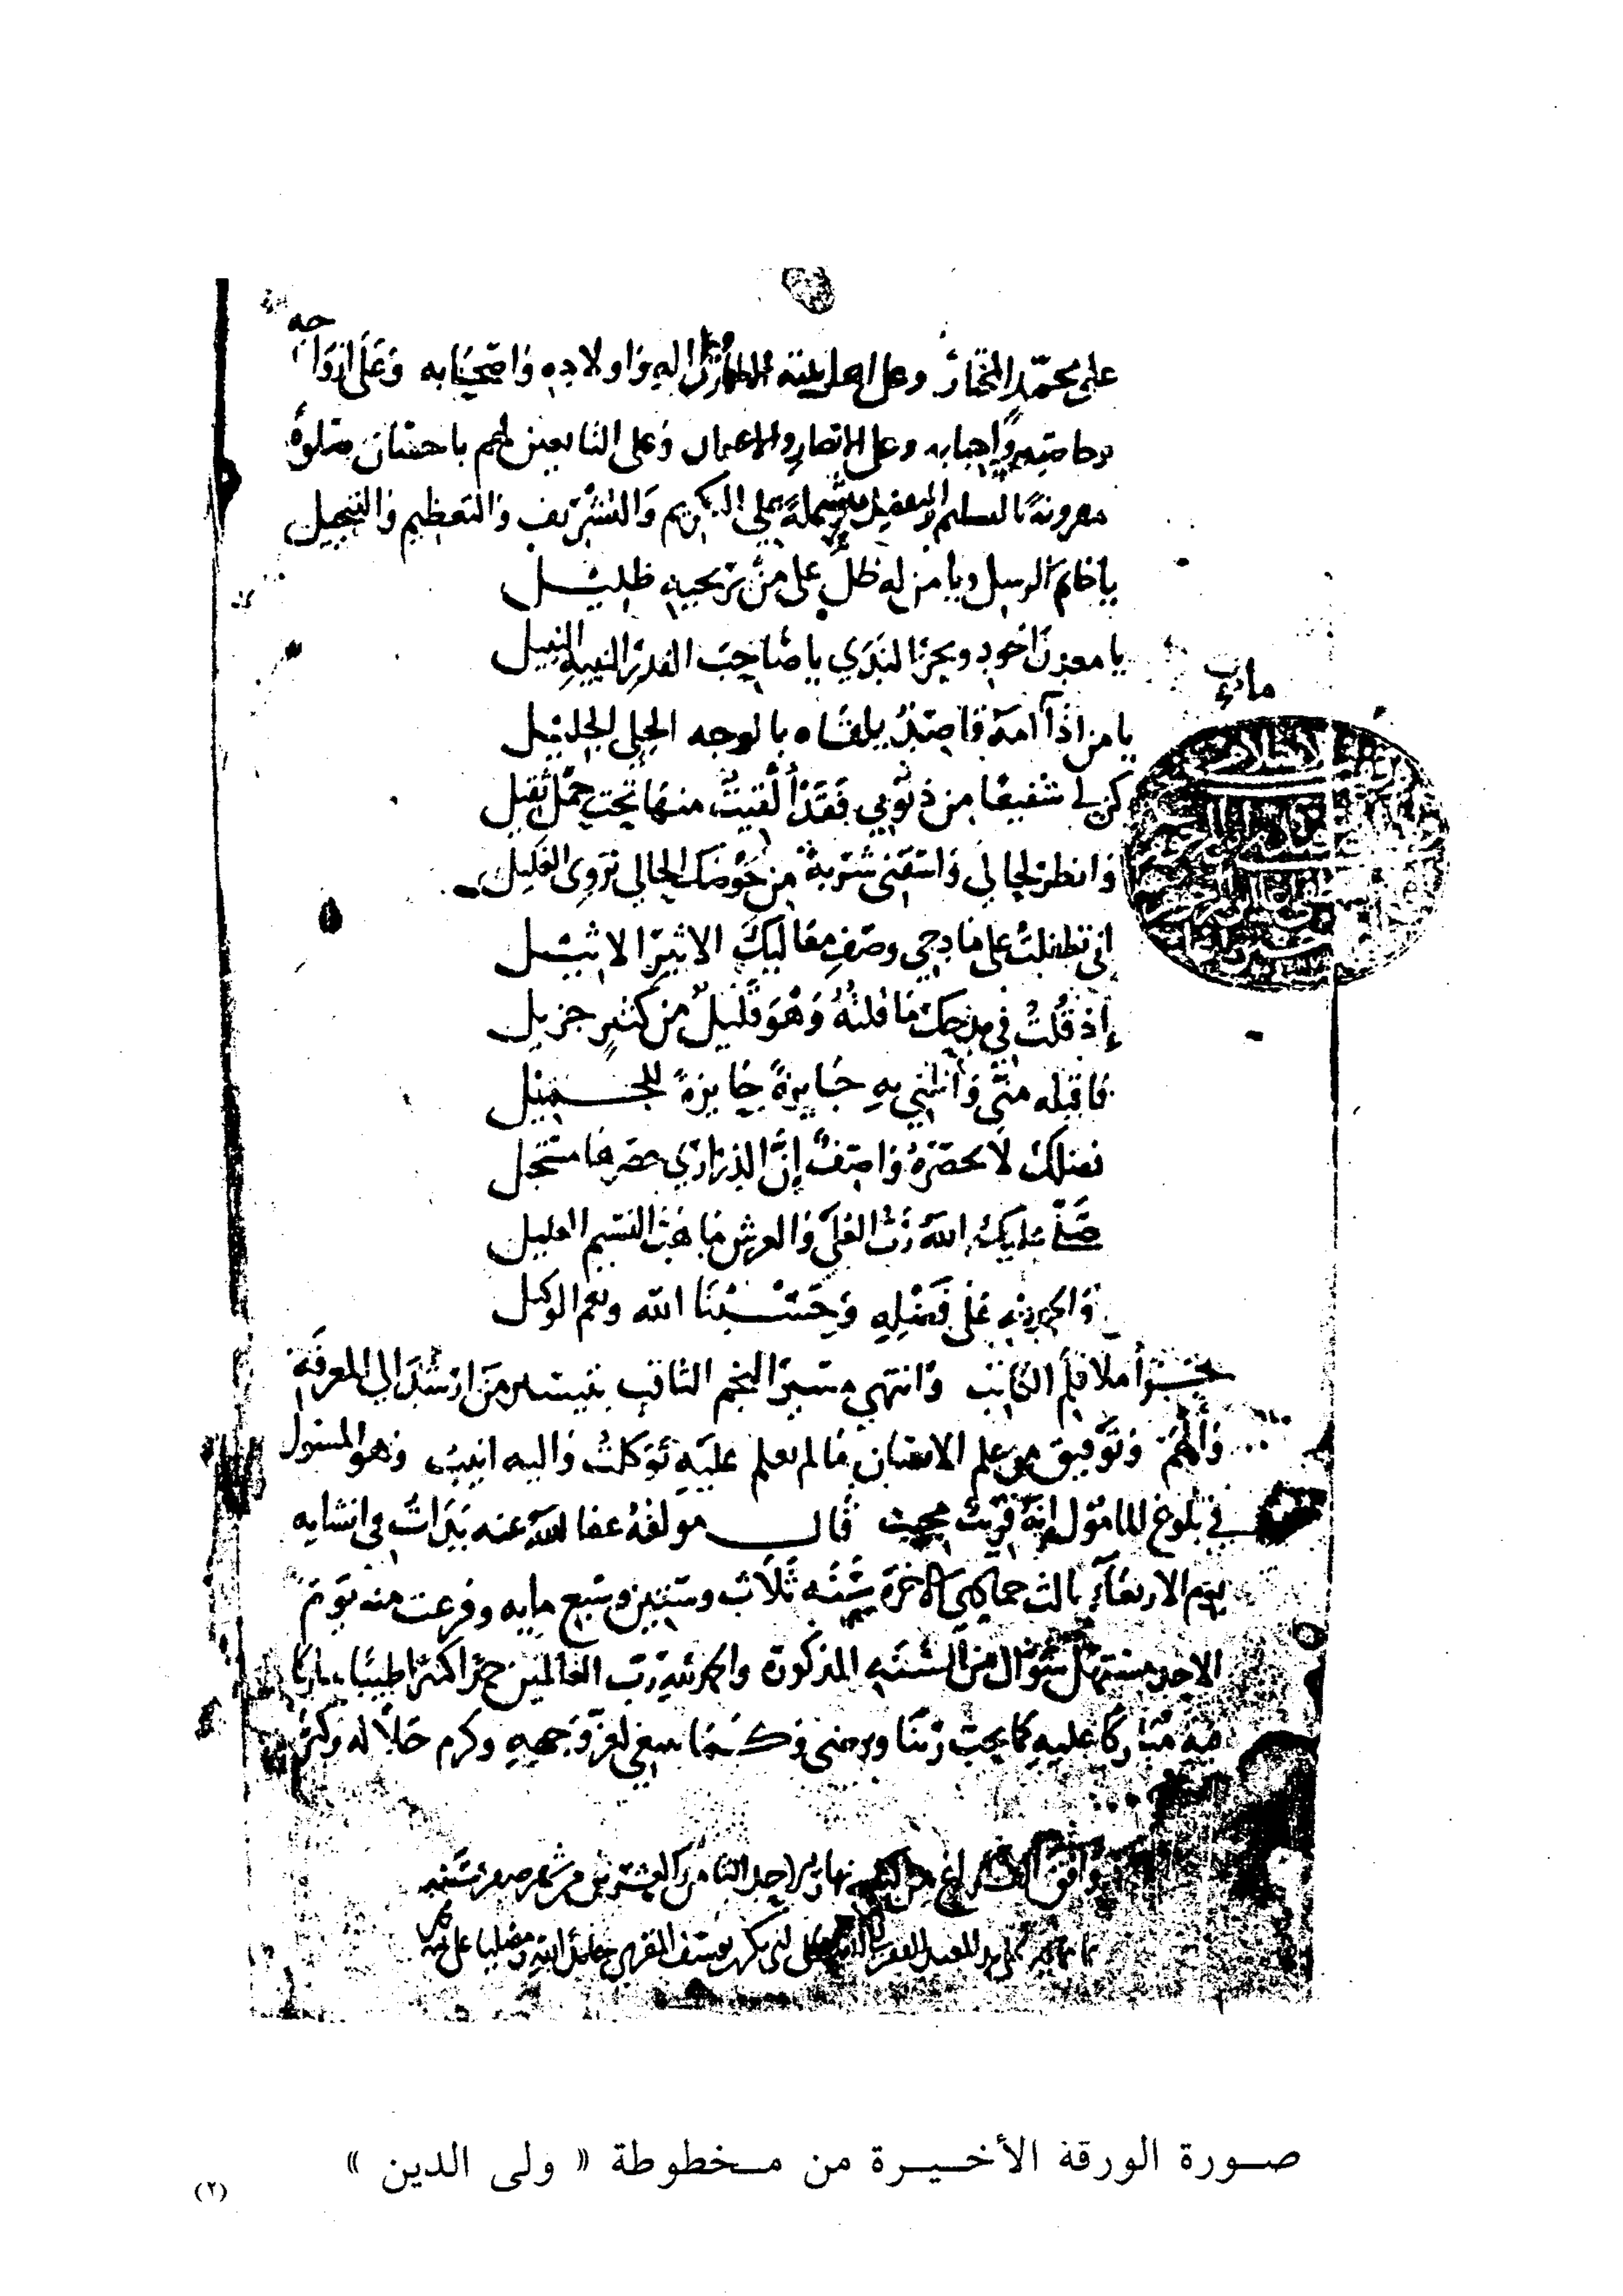 على محمد المختار وعلى اهل بيته واولاده واصحابه وعلى ازواجه
واحبابه وعلى الانصار وعلى التابعين لهم باحسان صلوة
مقرونة بالتسليم مشتملة على التكريم والتشريف والتعظيم والتبجيل
يا خاتم الرسل ويا من له ظل على من يرتجيه ظليل
يا معدن الجود وبحر الندي يا صاحب القدر النبيه النبيل
يا من اذا امه قاصد يلقاه بالوجه الجلي الجليل
كن لي شفيعا من ذنوبي فقد القيت منها تحت حمل ثقيل
وانظر لحالي واسقني شربة من حوضك الحالي تروي الغليل
اني تطفلت على مادحي وصف معاليك الاثير الاثيل
إذ قلت في مدحك ما قلته وهو قليل من كثير جزيل
فاقبله مني وأنلني به جايزة حايزة للجميل
فضلك لا يحصره واصف إن الدراري حصرها مستحيل
صلى عليك الله رب العلى والعرش ما هب النسيم العليل
والحمد لله على فضله وحسبنا الله ونعم الوكيل
قلم الكاتب وانتهى مسير النجم الثاقب بتيسير من ارشد الى المعرفة
وألهم وتوفيق من علم الانسان ما لم يعلم عليه توكلت واليه انيب وهو المسئول
في بلوغ المامول إنه قريب مجيب قال مولفه عفا الله عنه بدات في انشايه
يوم الاربعاء ثالث جمادى الاخرة سنة ثلاث وستين وسبع مايه وفرغت منه يوم
الاحد مستهل شوال من السنه المذكورة والحمد لله رب العالمين حمدا كثيرا طيبا مباركا
فيه مباركا عليه كما يحب ربنا ويرضى وكما ينبغي لعز وجهه وكرم جلاله وكبر
وافق الفراغ من نهار الاحد الثامن والعشرين من شهر صفر سنة
على يد العبد الفقير بن يوسف المقري حامدا لله ومصليا على
صورة الورقة الأخيرة من مخطوطة « ولى الدين »
(٢)